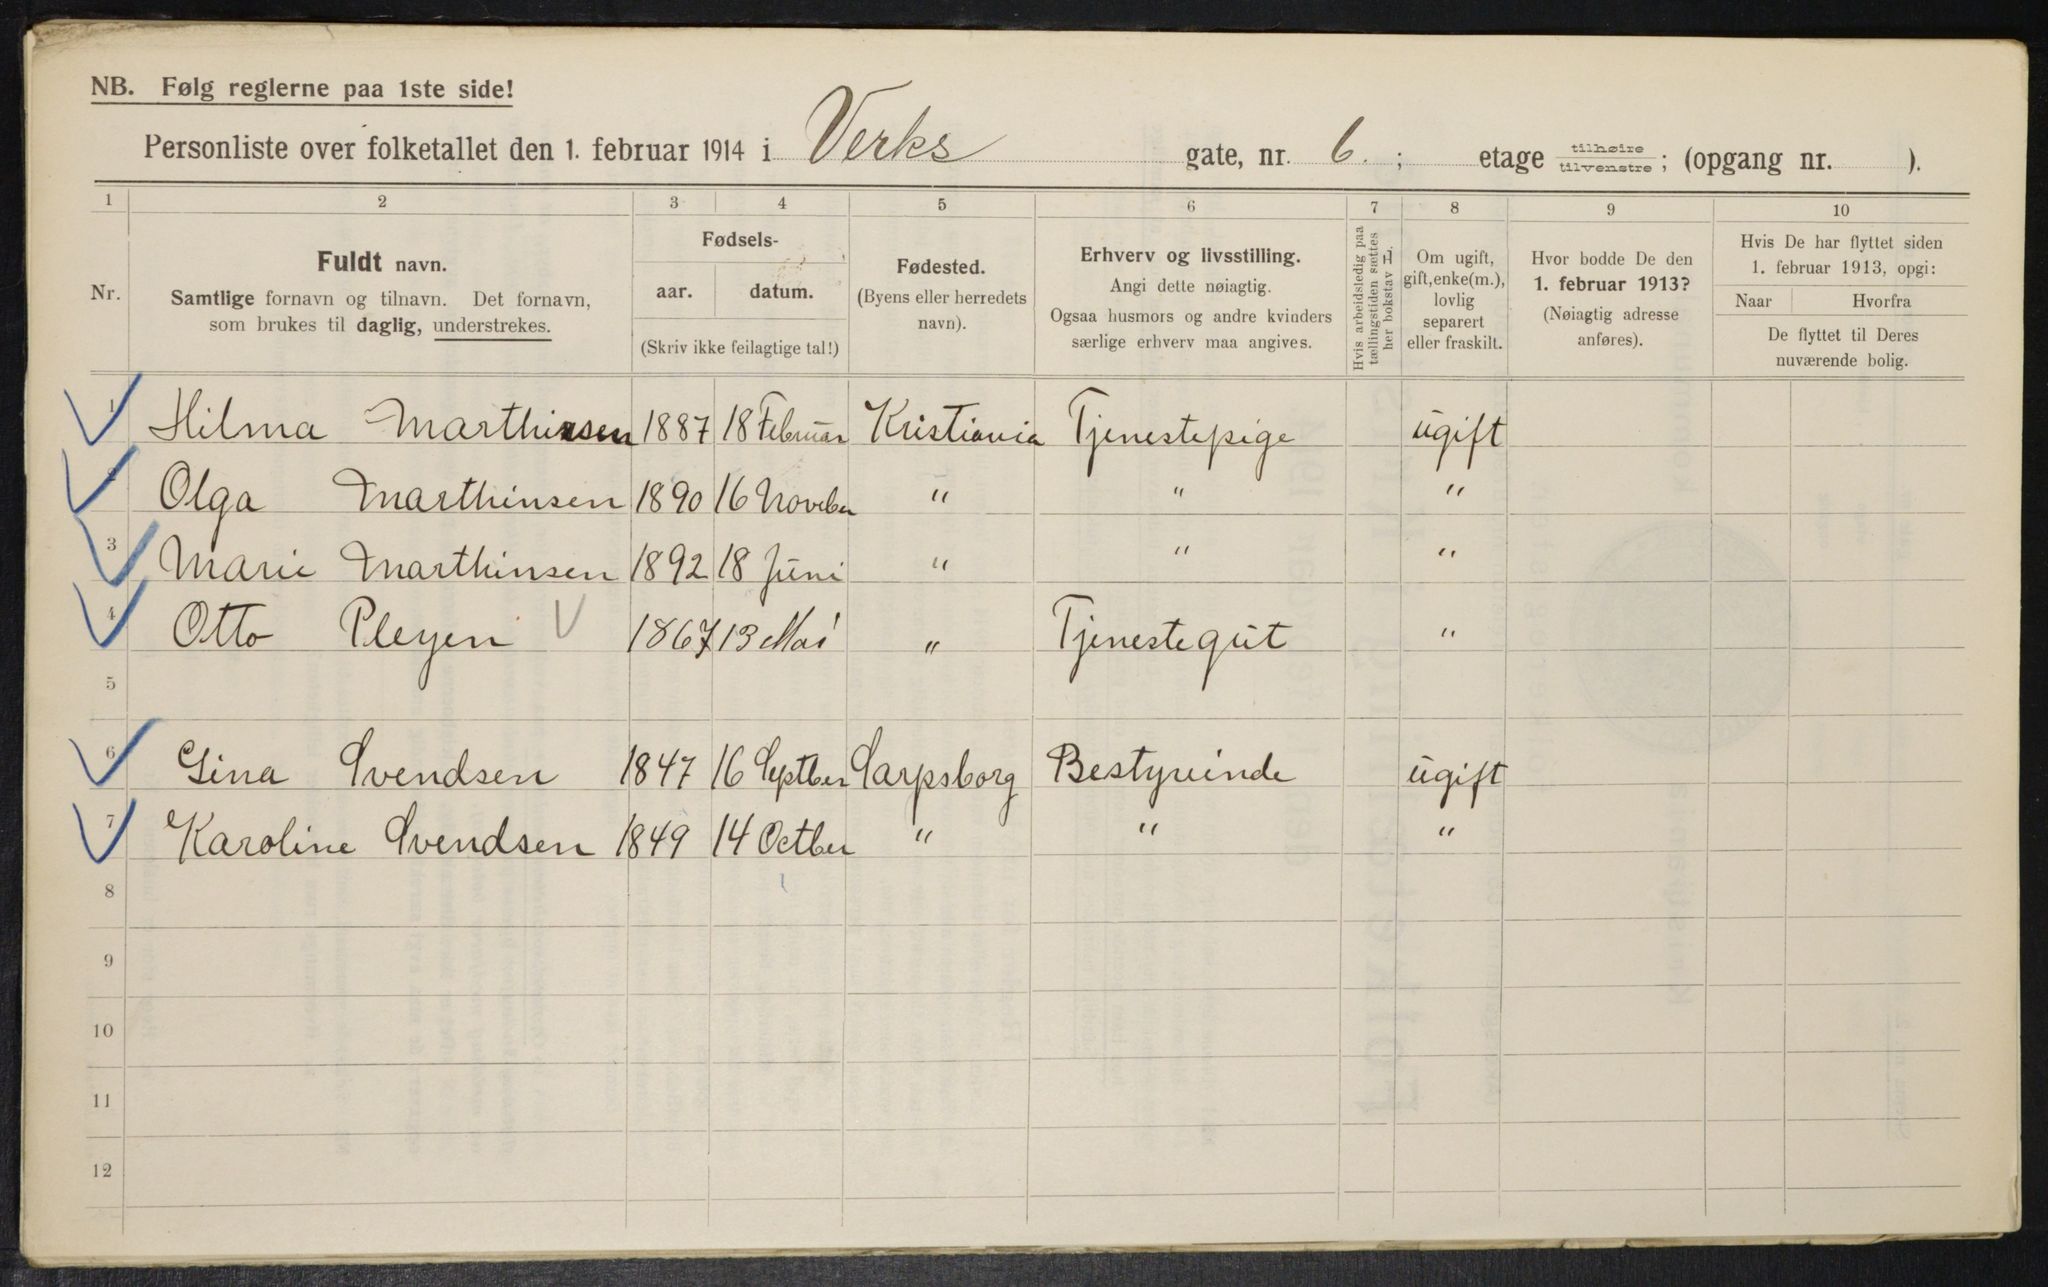 NB. Følg reglerne paa 1ste side!
Personliste over folketallet den 1. februar 1914 i Verks gate, nr. 6. ; etage tilhøire tilvenstre ; (opgang nr. ).
1 2 3 4 5 6 7 8 9 10
Nr.
Fuldt navn.
Samtlige fornavn og tilnavn. Det fornavn,
som brukes til daglig, understrekes.
Fødsels-
aar. datum.
(Skriv ikke feilagtige tal!)
Fødested.
(Byens eller herredets
navn).
Erhverv og livsstilling.
Angi dette nøiagtig.
Ogsaa husmors og andre kvinders
særlige erhverv maa angives.
Hvis arbeidsledig paa
tællingstiden sættes
her bokstav L.
Om ugift,
gift, enke(m.),
lovlig
separert
eller fraskilt.
Hvor bodde De den
1. februar 1913?
(Nøiagtig adresse
anføres).
Hvis De har flyttet siden
1. februar 1913, opgi:
Naar Hvorfra
De flyttet til Deres
nuværende bolig.
1 Hilma Marthinsen 1887 18 Februar Kristiania Tjenestepige ugift
2 Olga Marthinsen 1890 16 Noveber " " "
3 Marie Marthinsen 1892 18 Juni " " "
4 Otto Pleyen 1867 13 Mai " Tjenestegut "
5
6 Gina Svendsen 1847 16 Septber Sarpsborg Bestyrinde ugift
7 Karoline Svendsen 1849 14 Octber " " "
8
9
10
11
12